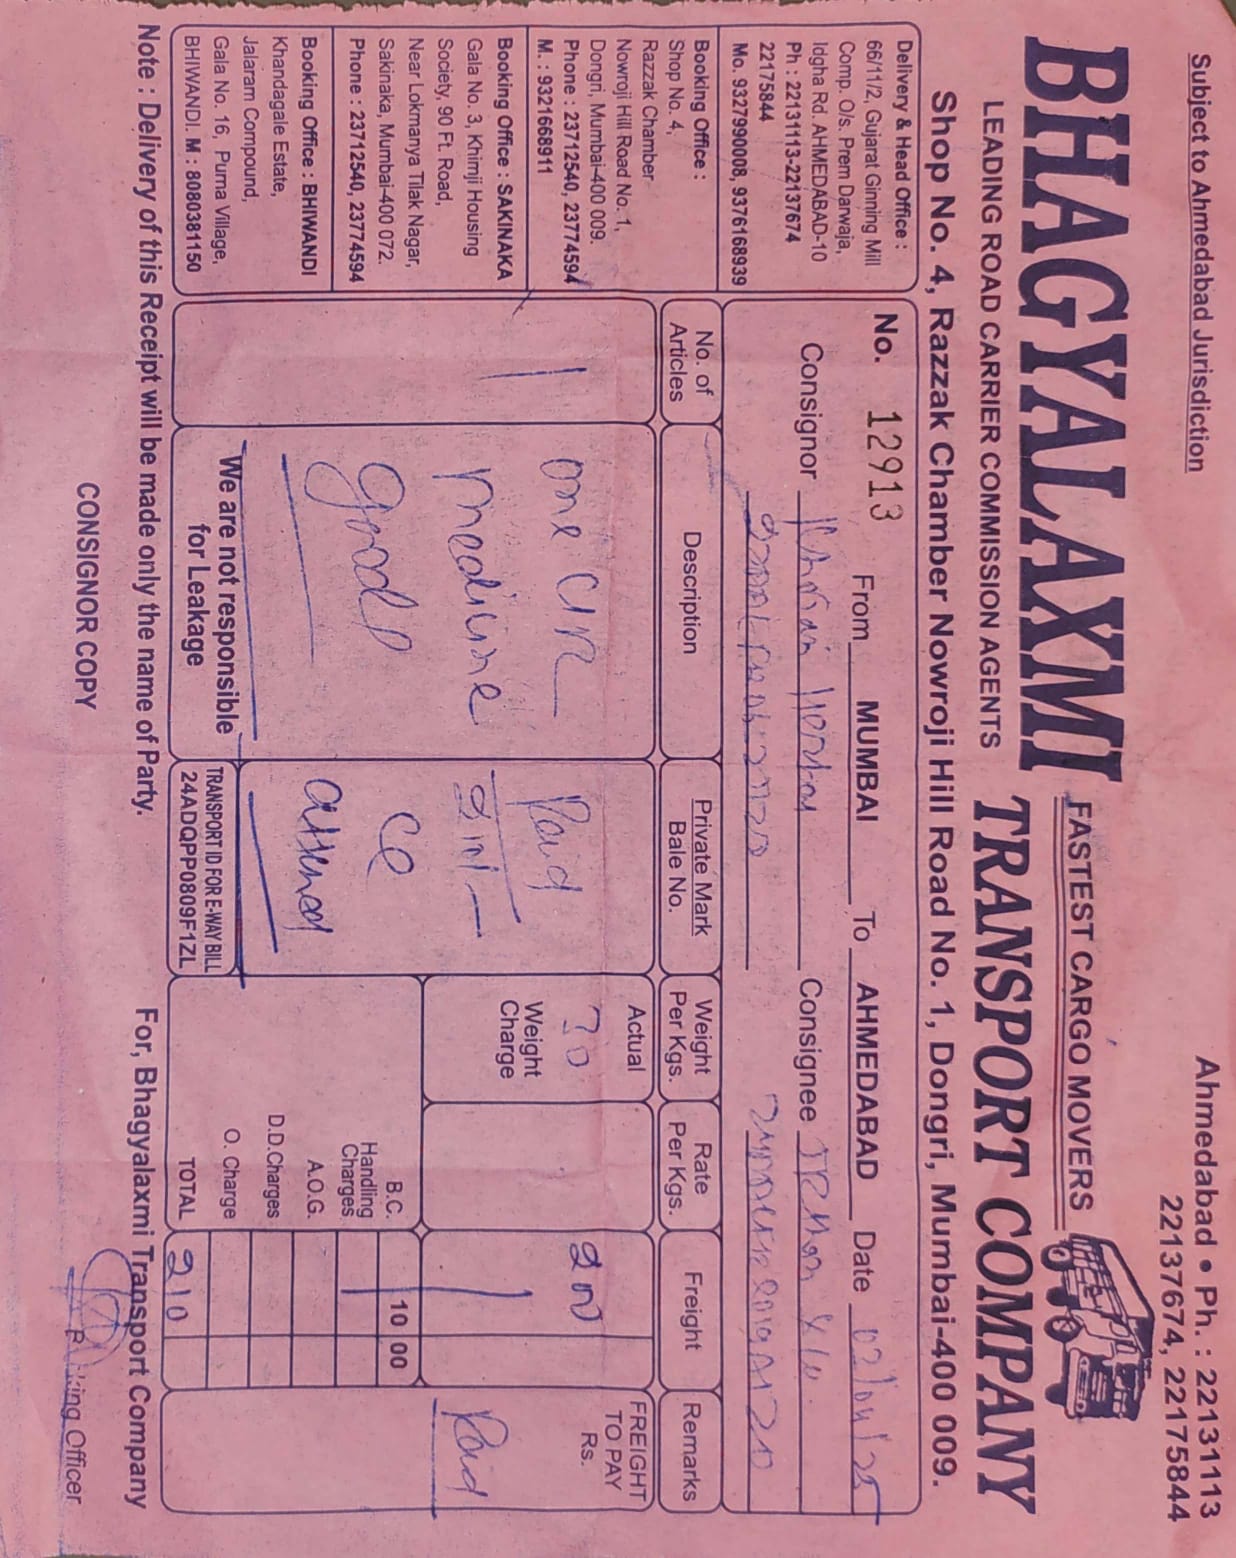 Subject to Ahmedabad Jurisdiction
Ahmedabad • Ph. : 22131113
22137674, 22175844
BHAGYALAXMI
FASTEST CARGO MOVERS
LEADING ROAD CARRIER COMMISSION AGENTS
TRANSPORT COMPANY
Shop No. 4, Razzak Chamber Nowroji Hill Road No. 1, Dongri, Mumbai-400 009.
Delivery & Head Office :
66/11/2, Gujarat Ginning Mill
Comp. O/s. Prem Darwaja,
Idgha Rd. AHMEDABAD-10
Ph : 22131113-22137674
22175844
Mo. 9327990008, 9376168939
Booking Office :
Shop No. 4,
Razzak Chamber
Nowroji Hill Road No. 1,
Dongri, Mumbai-400 009.
Phone : 23712540, 23774594
M. : 9321668911
Booking Office : SAKINAKA
Gala No. 3, Khimji Housing
Society, 90 Ft. Road,
Near Lokmanya Tilak Nagar,
Sakinaka, Mumbai-400 072.
Phone : 23712540, 23774594
Booking Office : BHIWANDI
Khandagale Estate,
Jalaram Compound,
Gala No. 16, Purna Village,
BHIWANDI. M : 8080381150
No. 12913 From MUMBAI To AHMEDABAD Date
Consignor
Consignee
No. of
Articles
Description
Private Mark
Bale No.
Weight
Per Kgs.
Rate
Per Kgs.
Freight
Remarks
1
one
medicine
good
We are not responsible
for Leakage
Paid
TRANSPORT ID FOR E-WAY BILL
24ADQPP0809F1ZL
Actual
Weight
Charge
200
FREIGHT
TO PAY
Rs.
Paid
B.C. 10 00
Handling
Charges
A.O.G.
D.D.Charges
O. Charge
TOTAL 210
Note : Delivery of this Receipt will be made only the name of Party.
For, Bhagyalaxmi Transport Company
CONSIGNOR COPY
Booking Officer